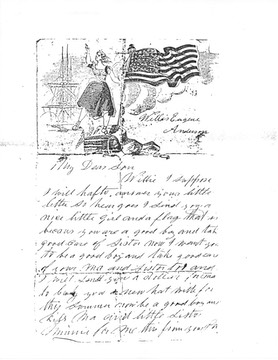 Willie Eugene
Anderson
My Dear Son
Willie I suppose
I will hafto answer your little
letter so hear goes I send you a
nice little Girl and a flag that is
because you are a good boy and take
good care of Sister now I want you
to be a good boy and take good care
of your Ma and Sister Lot and
I will send you a dollar
to buy you a new hat with for
this Summer now be a good boy and
kiss Ma and little Sister
Minnie for me this from your Pa